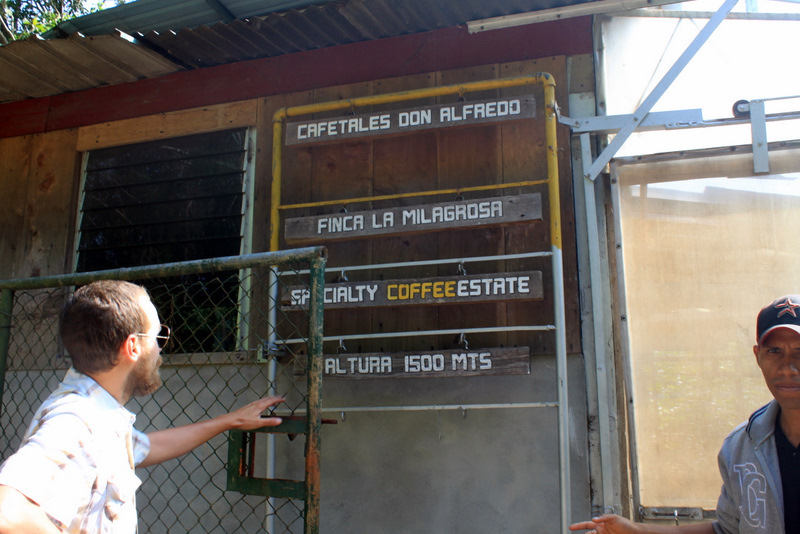 CAFETALES DON ALFREDO
FINCA LA MILAGROSA
SPECIALTY COFFEE ESTATE
ALTURA 1500 MTS